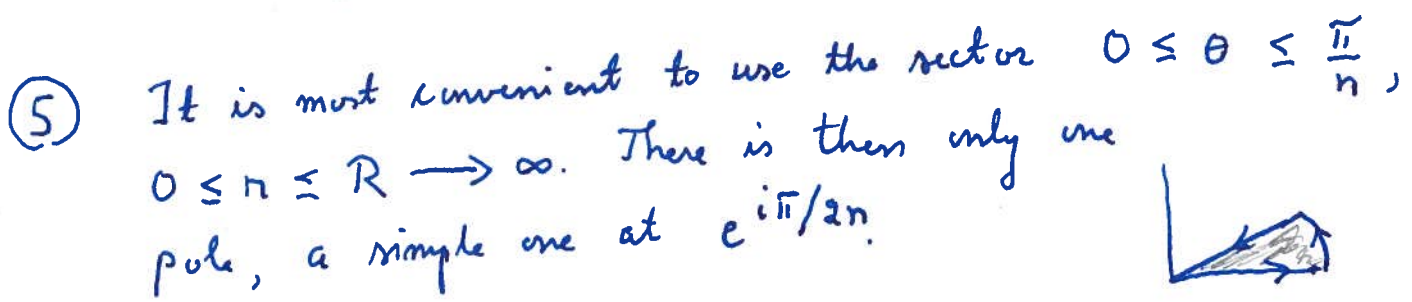 ⑤ It is most convenient to use the sector 0 ≤ θ ≤ π/n,
0 ≤ r ≤ R → ∞. There is then only one
pole, a simple one at e^{iπ/2n}.